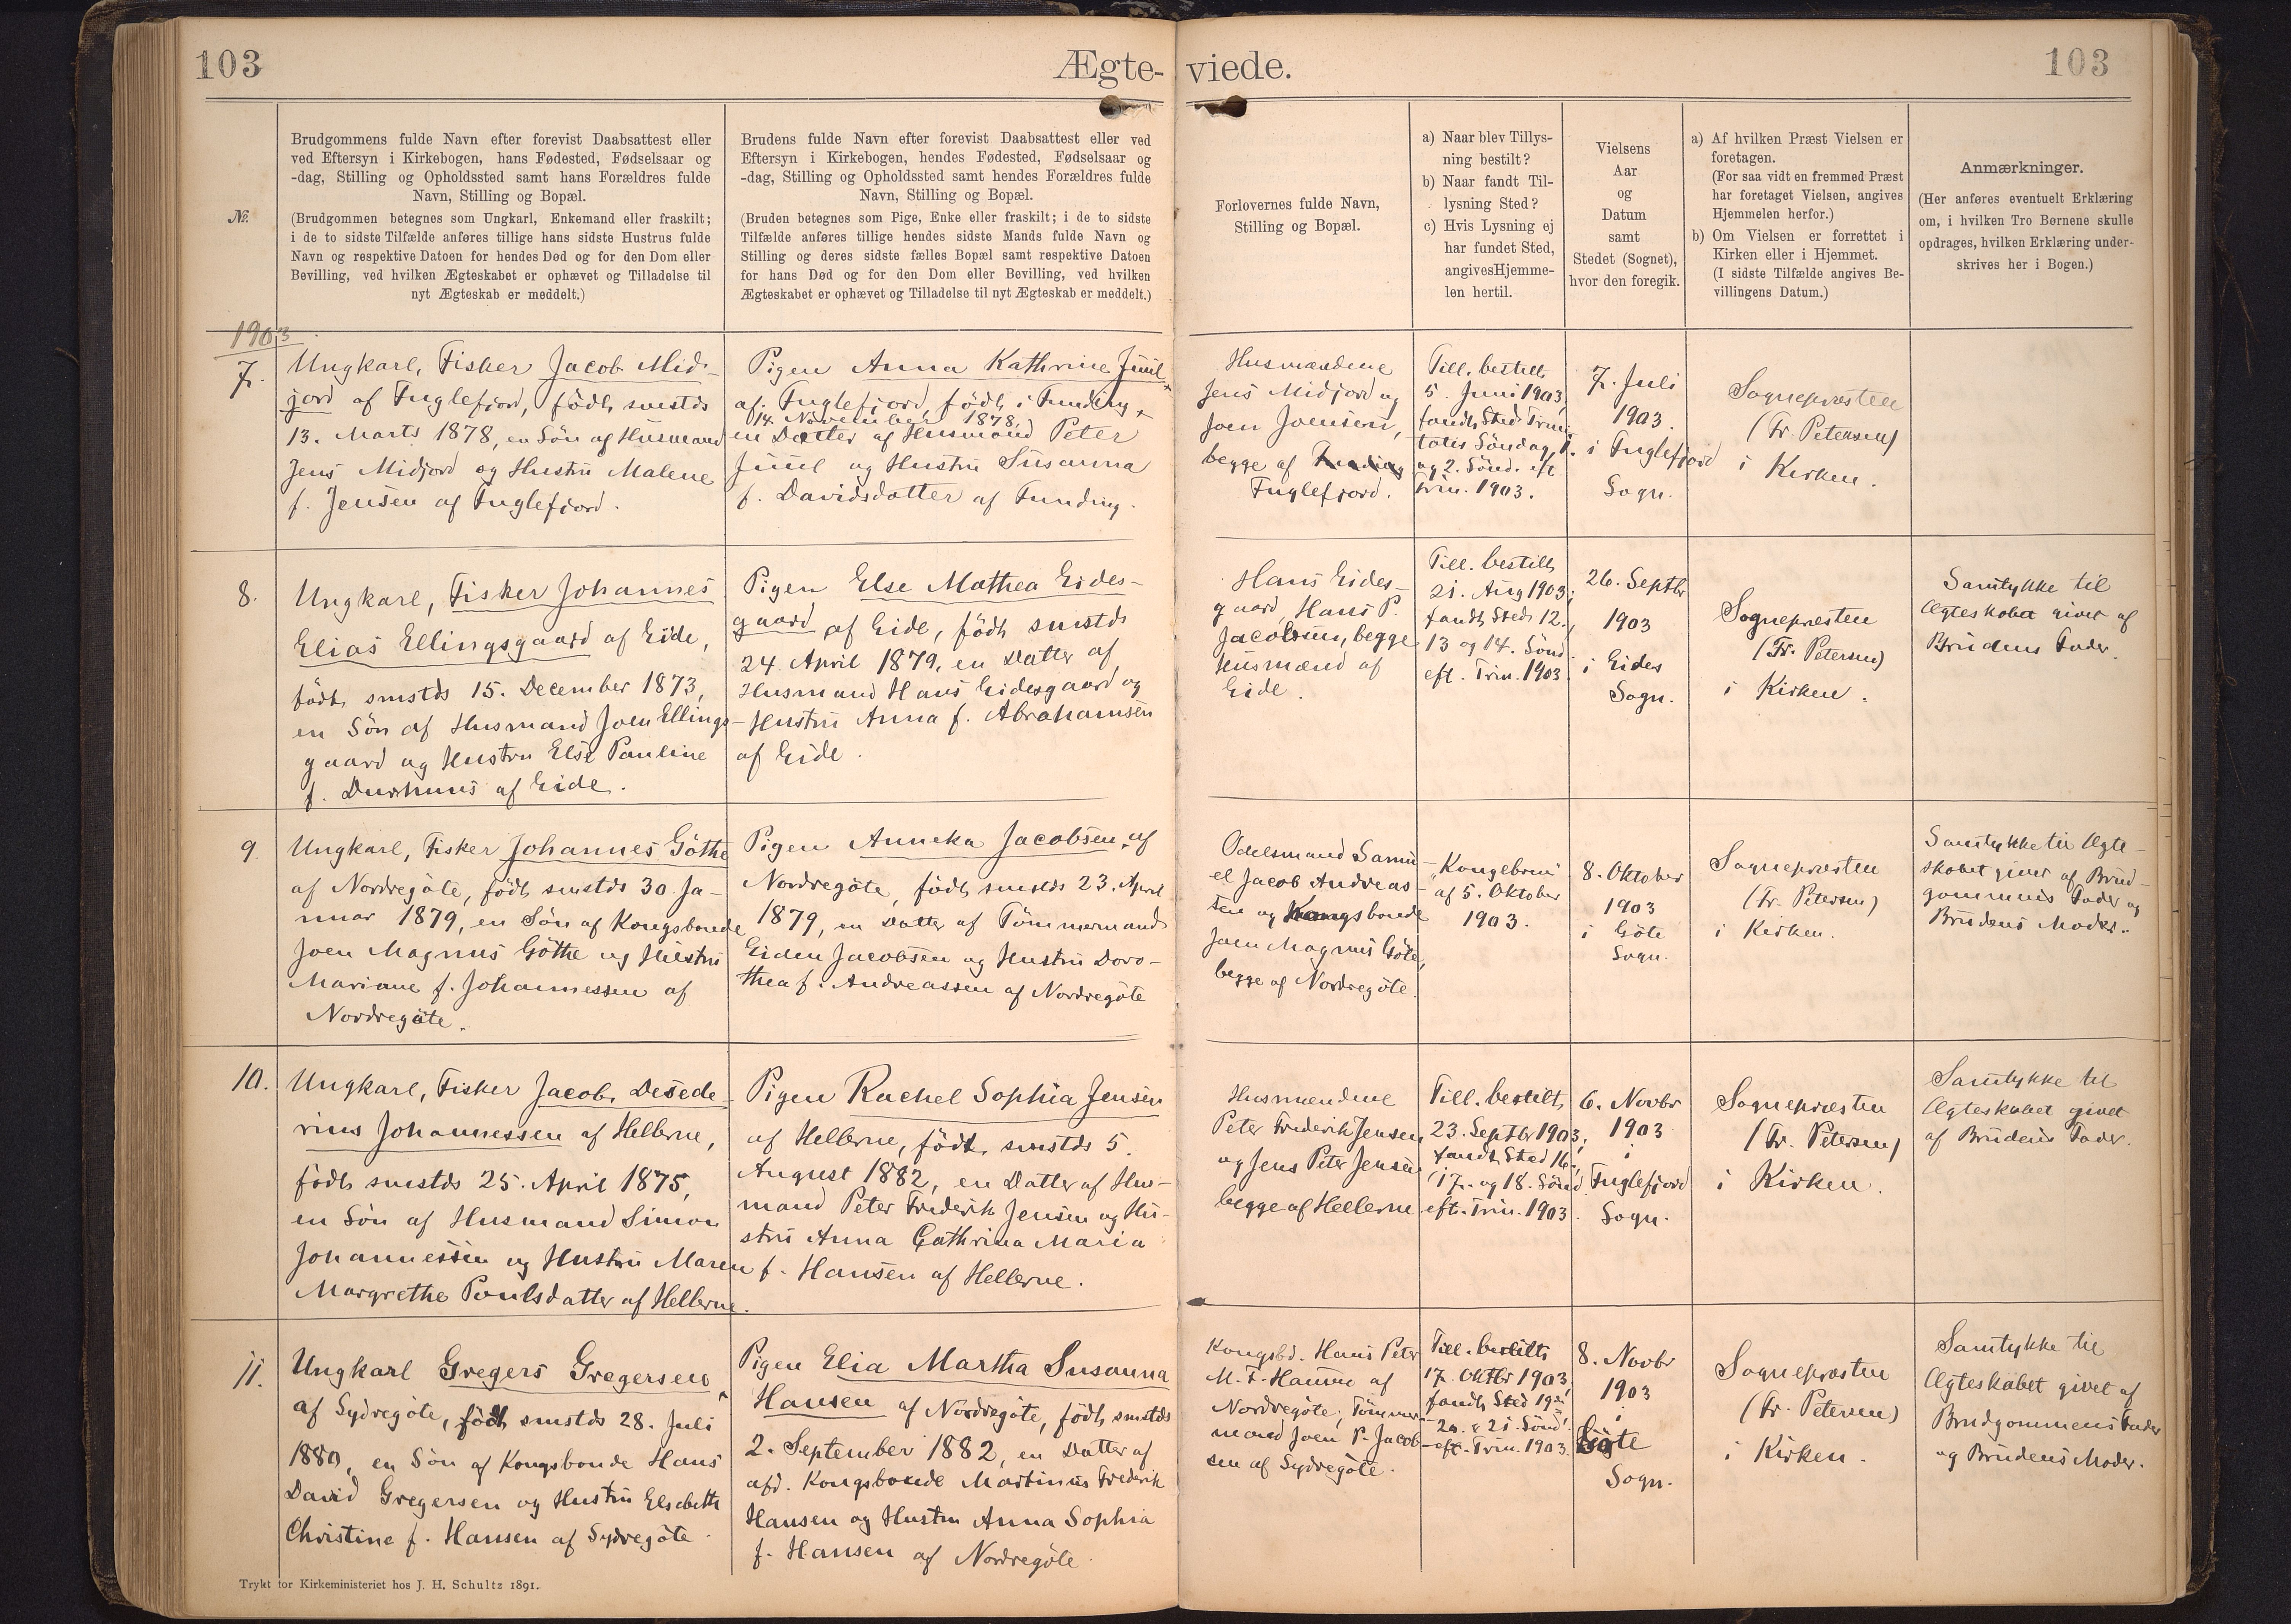 103
Ægte-
viede.
103
№.
Brudgommens fulde Navn efter forevist Daabsattest eller
ved Eftersyn i Kirkebogen, hans Fødested, Fødselsaar og
-dag, Stilling og Opholdssted samt hans Forældres fulde
Navn, Stilling og Bopæl.
(Brudgommen betegnes som Ungkarl, Enkemand eller fraskilt;
i de to sidste Tilfælde anføres tillige hans sidste Hustrus fulde
Navn og respektive Datoen for hendes Død og for den Dom eller
Bevilling, ved hvilken Ægteskabet er ophævet og Tilladelse til
nyt Ægteskab er meddelt.)
Brudens fulde Navn efter forevist Daabsattest eller ved
Eftersyn i Kirkebogen, hendes Fødested, Fødselsaar og
-dag, Stilling og Opholdssted samt hendes Forældres fulde
Navn, Stilling og Bopæl.
(Bruden betegnes som Pige, Enke eller fraskilt; i de to sidste
Tilfælde anføres tillige hendes sidste Mands fulde Navn og
Stilling og deres sidste fælles Bopæl samt respektive Datoen
for hans Død og for den Dom eller Bevilling, ved hvilken
Ægteskabet er ophævet og Tilladelse til nyt Ægteskab er meddelt.)
Forlovernes fulde Navn,
Stilling og Bopæl.
a) Naar blev Tillys-
ning bestilt?
b) Naar fandt Til-
lysning Sted?
c) Hvis Lysning ej
har fundet Sted,
angives Hjemme-
len hertil.
Vielsens
Aar
og
Datum
samt
Stedet (Sognet),
hvor den foregik.
a) Af hvilken Præst Vielsen er
foretagen.
(For saa vidt en fremmed Præst
har foretaget Vielsen, angives
Hjemmelen herfor.)
b) Om Vielsen er forrettet i
Kirken eller i Hjemmet.
(I sidste Tilfælde angives Be-
villingens Datum.)
Anmærkninger.
(Her anføres eventuelt Erklæring
om, i hvilken Tro Børnene skulle
opdrages, hvilken Erklæring under-
skrives her i Bogen.)
1903
7.
Ungkarl, Fisker Jacob Mid-
jord af Fuglefjord, født smstds
13. Marts 1878, en Søn af Husmand
Jens Midjord og Hustru Malene
f. Jensen af Fuglefjord.
Pigen Anna Kathrine Juul
af Fuglefjord, født i Funding
14. November 1878,
en Datter af Husmand Peter
Juul og Hustru Susanna
f. Davidsdatter af Funding.
Husmændene
Jens Midjord og
Joen Joensen,
begge af
Fuglefjord.
Till. bestilt
5. Juni 1903,
fandt Sted Trini-
tatis Søndag, 1.
og 2. Sønd. eft.
Trin. 1903.
7. Juli
1903.
i Fuglefjord
Sogn.
Sognepræsten
(Fr. Petersen)
i Kirken.
8.
Ungkarl, Fisker Johannes
Elias Ellingsgaard af Eide,
født smstds 15. December 1873,
en Søn af Husmand Joen Ellings-
gaard og Hustru Else Pauline
f. Durhuus af Eide.
Pigen Else Mathea Eides-
gaard af Eide, født smstds
24. April 1879, en Datter af
Husmand Hans Eidesgaard og
Hustru Anna f. Abrahamsen
af Eide.
Hans Eides-
gaard, Hans P.
Jacobsen, begge
Husmænd af
Eide.
Till. bestilt
21. Aug 1903;
fandt Sted 12.,
13 og 14. Sønd.
eft. Trin. 1903
26. Septbr
1903
i Eides
Sogn.
Sognepræsten
(Fr. Petersen)
i Kirken.
Samtykke til
Ægteskabet givet af
Brudens Fader.
9.
Ungkarl, Fisker Johannes Göthe
af Nordregöte, født smstds 30. Ja-
nuar 1879, en Søn af Kongsbonde
Joen Magnus Göthe og Hustru
Mariane f. Johannessen af
Nordregöte.
Pigen Anneka Jacobsen, af
Nordregöte, født smstds 23. April
1879, en Datter af Tömmermand
Eiden Jacobsen og Hustru Doro-
thea f. Andreassen af Nordregöte
Odelsmand Samu-
el Jacob Andreas-
sen og Kongsbonde
Joen Magnus Göte,
begge af Nordregöte.
"Kongebrev"
af 5. Oktober
1903.
8. Oktober
1903
i Göte
Sogn.
Sognepræsten
(Fr. Petersen)
i Kirken.
Samtykke til Ægte-
skabet givet af Brud-
gommens Fader og
Brudens Moder.
10.
Ungkarl, Fisker Jacob Desede-
rius Johannessen af Hellerne,
født smstds 25. April 1875,
en Søn af Husmand Simon
Johannessen og Hustru Maren
Margrethe Poulsdatter af Hellerne.
Pigen Rachel Sophia Jensen
af Hellerne, født smstds 5.
August 1882, en Datter af Hus-
mand Peter Frederik Jensen og Hu-
stru Anna Cathrina Maria
f. Hansen af Hellerne.
Husmændene
Peter Frederik Jensen
og Jens Peter Jensen
begge af Hellerne
Till. bestilt
23. Septbr 1903,
fandt Sted 16.,
17. og 18. Sønd.
eft. Trin. 1903.
6. Novbr
1903
i
Fuglefjord
Sogn.
Sognepræsten
(Fr. Petersen)
i Kirken.
Samtykke til
Ægteskabet givet
af Brudens Fader.
11.
Ungkarl Gregers Gregersen
af Sydregöte, født smstds 28. Juli
1880, en Søn af Kongsbonde Hans
David Gregersen og Hustru Elsebeth
Christine f. Hansen af Sydregöte.
Pigen Elia Martha Susanna
Hansen af Nordregöte, født smstds
2. September 1882, en Datter af
afd. Kongsbonde Martinus Frederik
Hansen og Hustru Anna Sophia
f. Hansen af Nordregöte.
Kongsbd. Hans Peter
M. F. Hansen af
Nordregöte, Tömmer-
mand Joen P. Jacob-
sen af Sydregöte.
Till. bestilt
17. Oktbr 1903,
fandt Sted 19de
20. & 21. Sønd.
eft. Trin. 1903.
8. Novbr
1903
i
Göte
Sogn.
Sognepræsten
(Fr. Petersen)
i Kirken.
Samtykke til
Ægteskabet givet af
Brudgommens Fader
og Brudens Moder.
Trykt for Kirkeministeriet hos J. H. Schultz 1891.